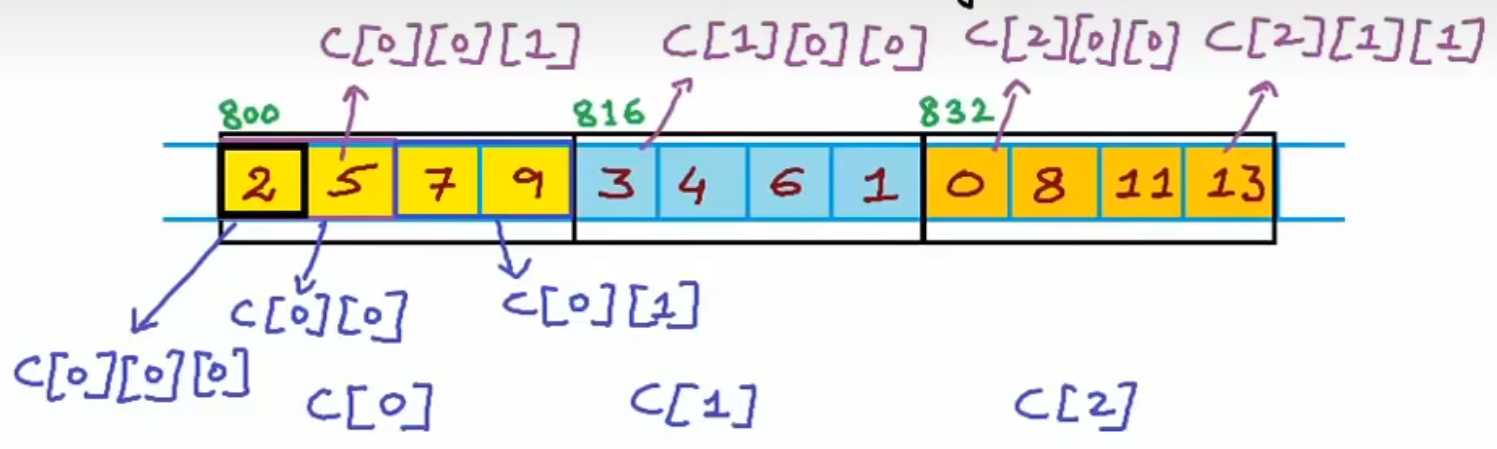 C[0][0][1] C[1][0][0] C[2][0][0] C[2][1][1]
800 816 832
2 5 7 9 3 4 6 1 0 8 11 13
C[0][0] C[0][1]
C[0][0][0]
C[0] C[1] C[2]